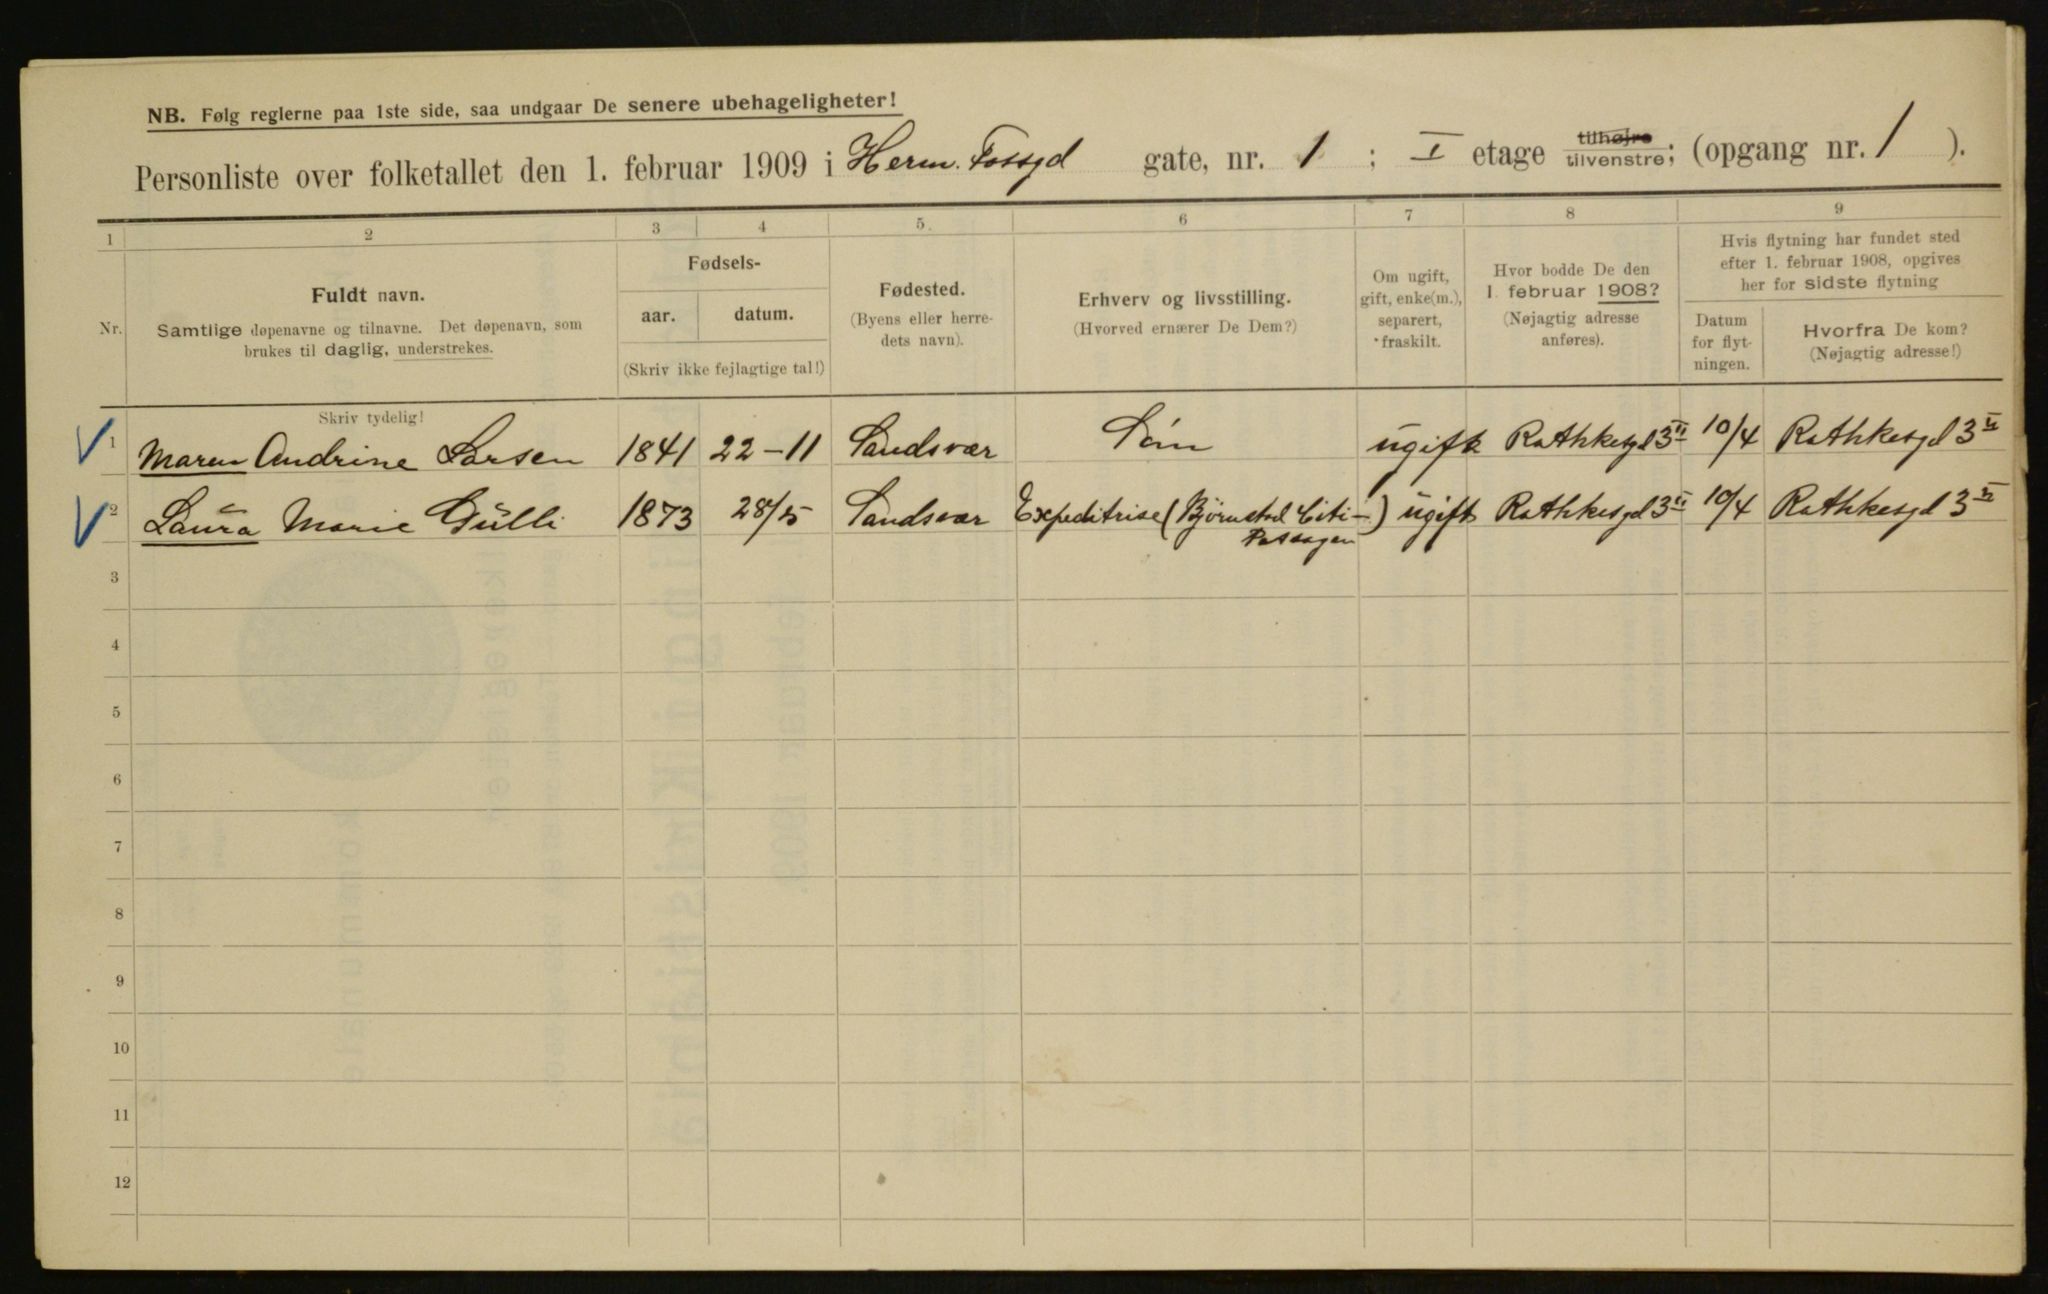 NB. Følg reglerne paa 1ste side, saa undgaar De senere ubehageligheter!
Personliste over folketallet den 1. februar 1909 i Herm. Fossgd gate, nr. 1 ; I etage tilhøjre tilvenstre; (opgang nr. 1 ).
1 2 3 4 5. 6 7 8 9
Nr.
Fuldt navn.
Samtlige døpenavne og tilnavne. Det døpenavn, som
brukes til daglig, understrekes.
Skriv tydelig!
Fødsels-
aar. datum.
(Skriv ikke fejlagtige tal!)
Fødested.
(Byens eller herre-
dets navn).
Erhverv og livsstilling.
(Hvorved ernærer De Dem?)
Om ugift,
gift, enke(m.),
separert,
fraskilt.
Hvor bodde De den
1. februar 1908?
(Nøjagtig adresse
anføres).
Hvis flytning har fundet sted
efter 1. februar 1908, opgives
her for sidste flytning
Datum
for flyt-
ningen.
Hvorfra De kom?
(Nøjagtig adresse!)
1 Maren Andrine Larsen 1841 22-11 Sandsvær Søm ugift Rathkesgd 3 II 10/4 Rathkesgd 3 II
2 Laura Marie Gulli 1873 28/5 Sandsvær Expeditrise (Bjørnstad Citi-) ugift Rathkesgd 3 II 10/4 Rathkesgd 3 II
Passagen
3
4
5
6
7
8
9
10
11
12